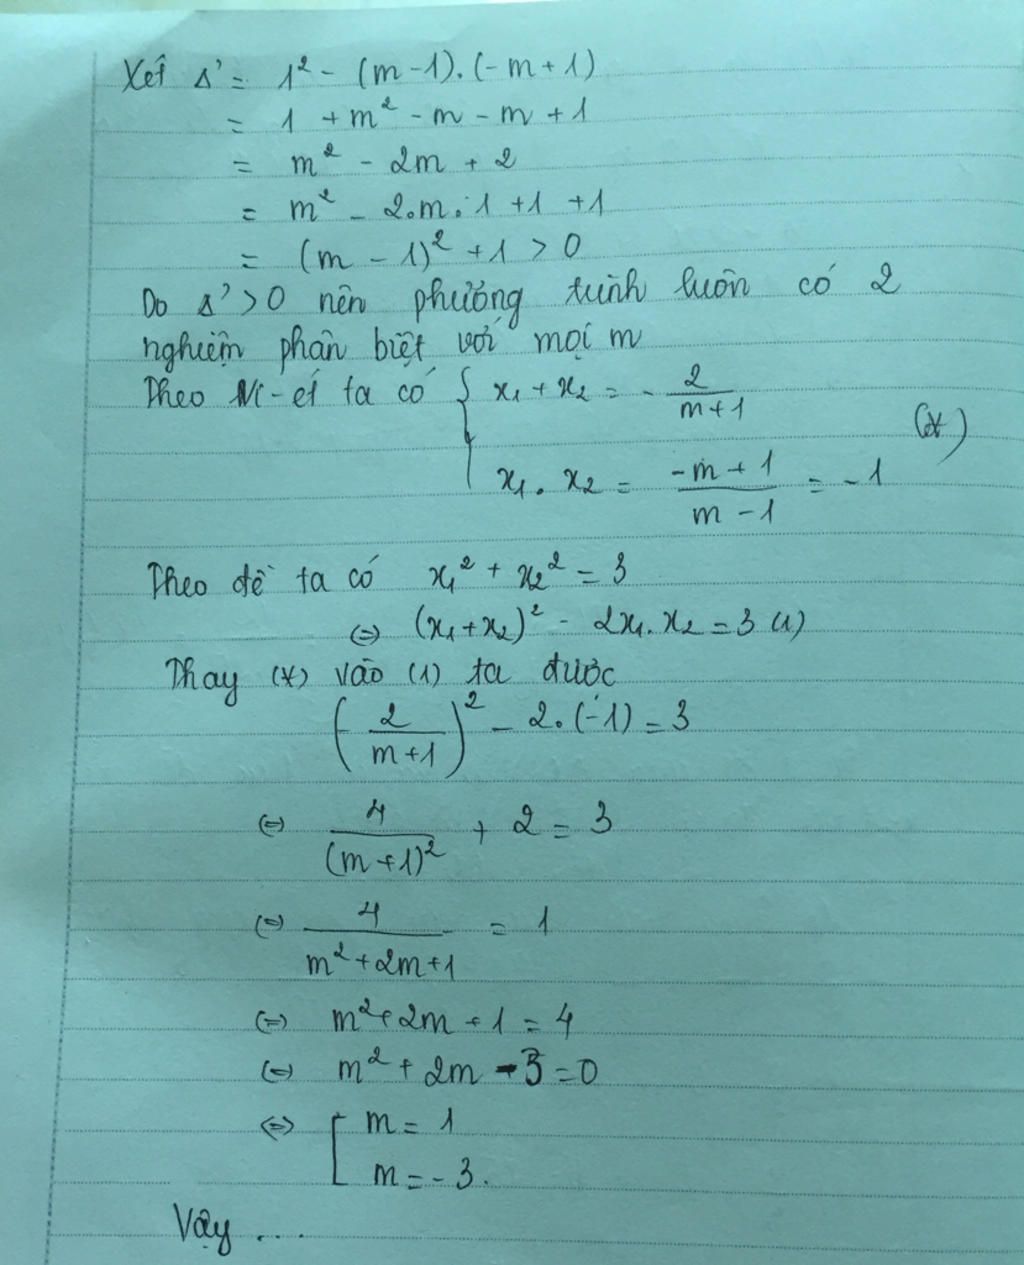 Xét Δ' = 1² - (m-1).(-m+1)
= 1 + m² - m - m + 1
= m² - 2m + 2
= m² - 2.m.1 + 1 + 1
= (m - 1)² + 1 > 0
Do Δ' > 0 nên phương trình luôn có 2
nghiệm phân biệt với mọi m
Theo Vi-ét ta có { x₁ + x₂ = - 2/(m+1)
x₁ . x₂ = (-m+1)/(m-1) = -1 (*)
Theo đề ta có x₁² + x₂² = 3
⇔ (x₁+x₂)² - 2x₁.x₂ = 3 (1)
Thay (*) vào (1) ta được
(- 2/(m+1))² - 2.(-1) = 3
⇔ 4/(m+1)² + 2 = 3
⇔ 4/(m²+2m+1) = 1
⇔ m²+2m+1 = 4
⇔ m² + 2m - 3 = 0
⇔ [ m = 1
m = -3.
Vậy ....